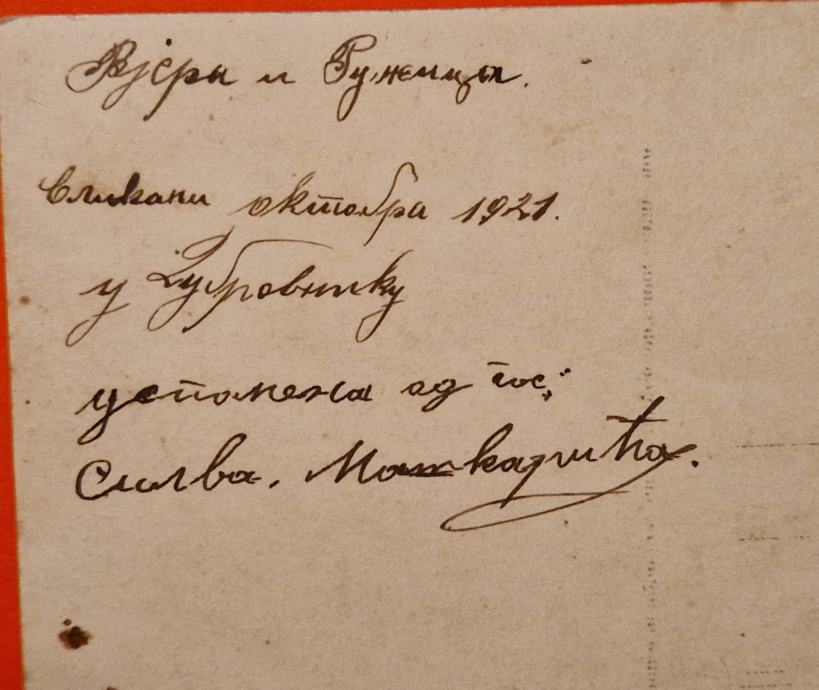 Вјера и Ружица.
Сликани октобра 1921.
у Дубровнику
успомена од гос:
Силва. Машкарића.